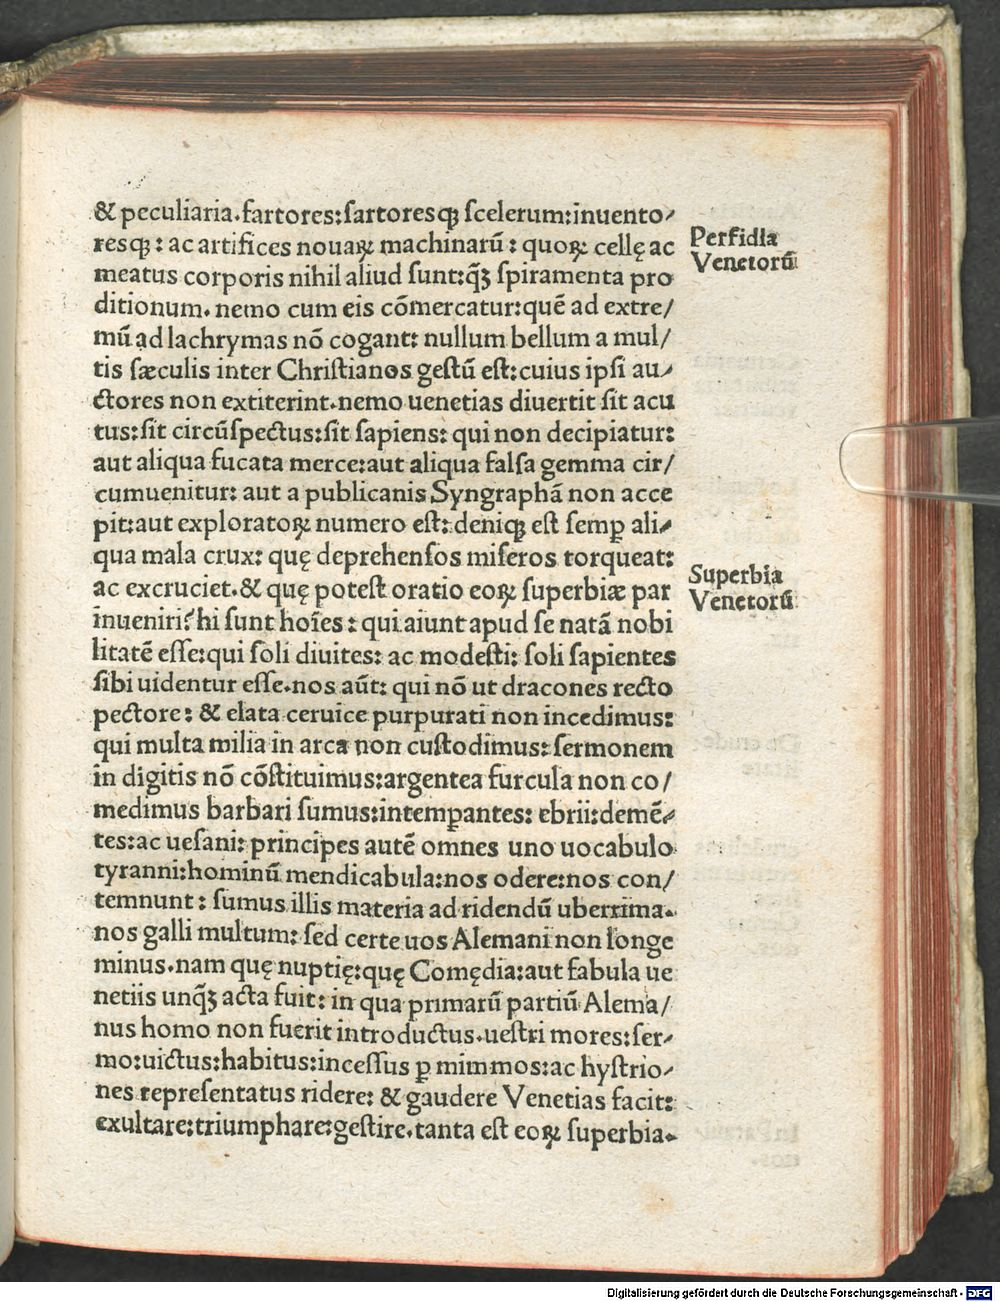 & peculiaria. fartores: ſartoresqꝫ ſcelerum: inuento⸗
resqꝫ: ac artifices nouaꝝ machinarū: quoꝝ cellę ac
meatus corporis nihil aliud ſunt: q̄ꝫ ſpiramenta pro
ditionum. nemo cum eis cōmercatur: quē ad extre/
mū ad lachrymas nō cogant: nullum bellum a mul/
tis ſæculis inter Chriſtianos geſtū eſt: cuius ipſi au⸗
ctores non extiterint. nemo uenetias diuertit ſit acu
tus: ſit circūſpectus: ſit ſapiens: qui non decipiatur:
aut aliqua fucata merce: aut aliqua falſa gemma cir/
cumuenitur: aut a publicanis Syngraphā non acce
pit: aut exploratoꝝ numero eſt: deniqꝫ eſt ſemꝑ ali⸗
qua mala crux: quę deprehenſos miſeros torqueat:
ac excruciet. & quę poteſt oratio eoꝝ ſuperbiæ par
inueniri? hi ſunt hoīes: qui aiunt apud ſe natā nobi
litatē eſſe: qui ſoli diuites: ac modeſti: ſoli ſapientes
ſibi uidentur eſſe. nos aūt: qui nō ut dracones recto
pectore: & elata ceruice purpurati non incedimus:
qui multa milia in arca non cuſtodimus: ſermonem
in digitis nō cōſtituimus: argentea furcula non co/
medimus barbari ſumus: intemꝑantes: ebrii: demē⸗
tes: ac ueſani: principes autē omnes uno uocabulo
tyranni: hominū mendicabula: nos odere: nos con/
temnunt: ſumus illis materia ad ridendū uberrima.
nos galli multum: ſed certe uos Alemani non longe
minus. nam quę nuptię: quę Comędia: aut fabula ue
netiis unq̄ꝫ acta fuit: in qua primarū partiū Alema/
nus homo non fuerit introductus. ueſtri mores: ſer⸗
mo: uictus: habitus: inceſſus ꝑ mimmos: ac hyſtrio⸗
nes repreſentatus ridere: & gaudere Venetias facit:
exultare: triumphare: geſtire. tanta eſt eoꝝ ſuperbia.
Perfidia
Venetorū
Superbia
Venetorū
Digitalisierung gefördert durch die Deutsche Forschungsgemeinschaft - DFG